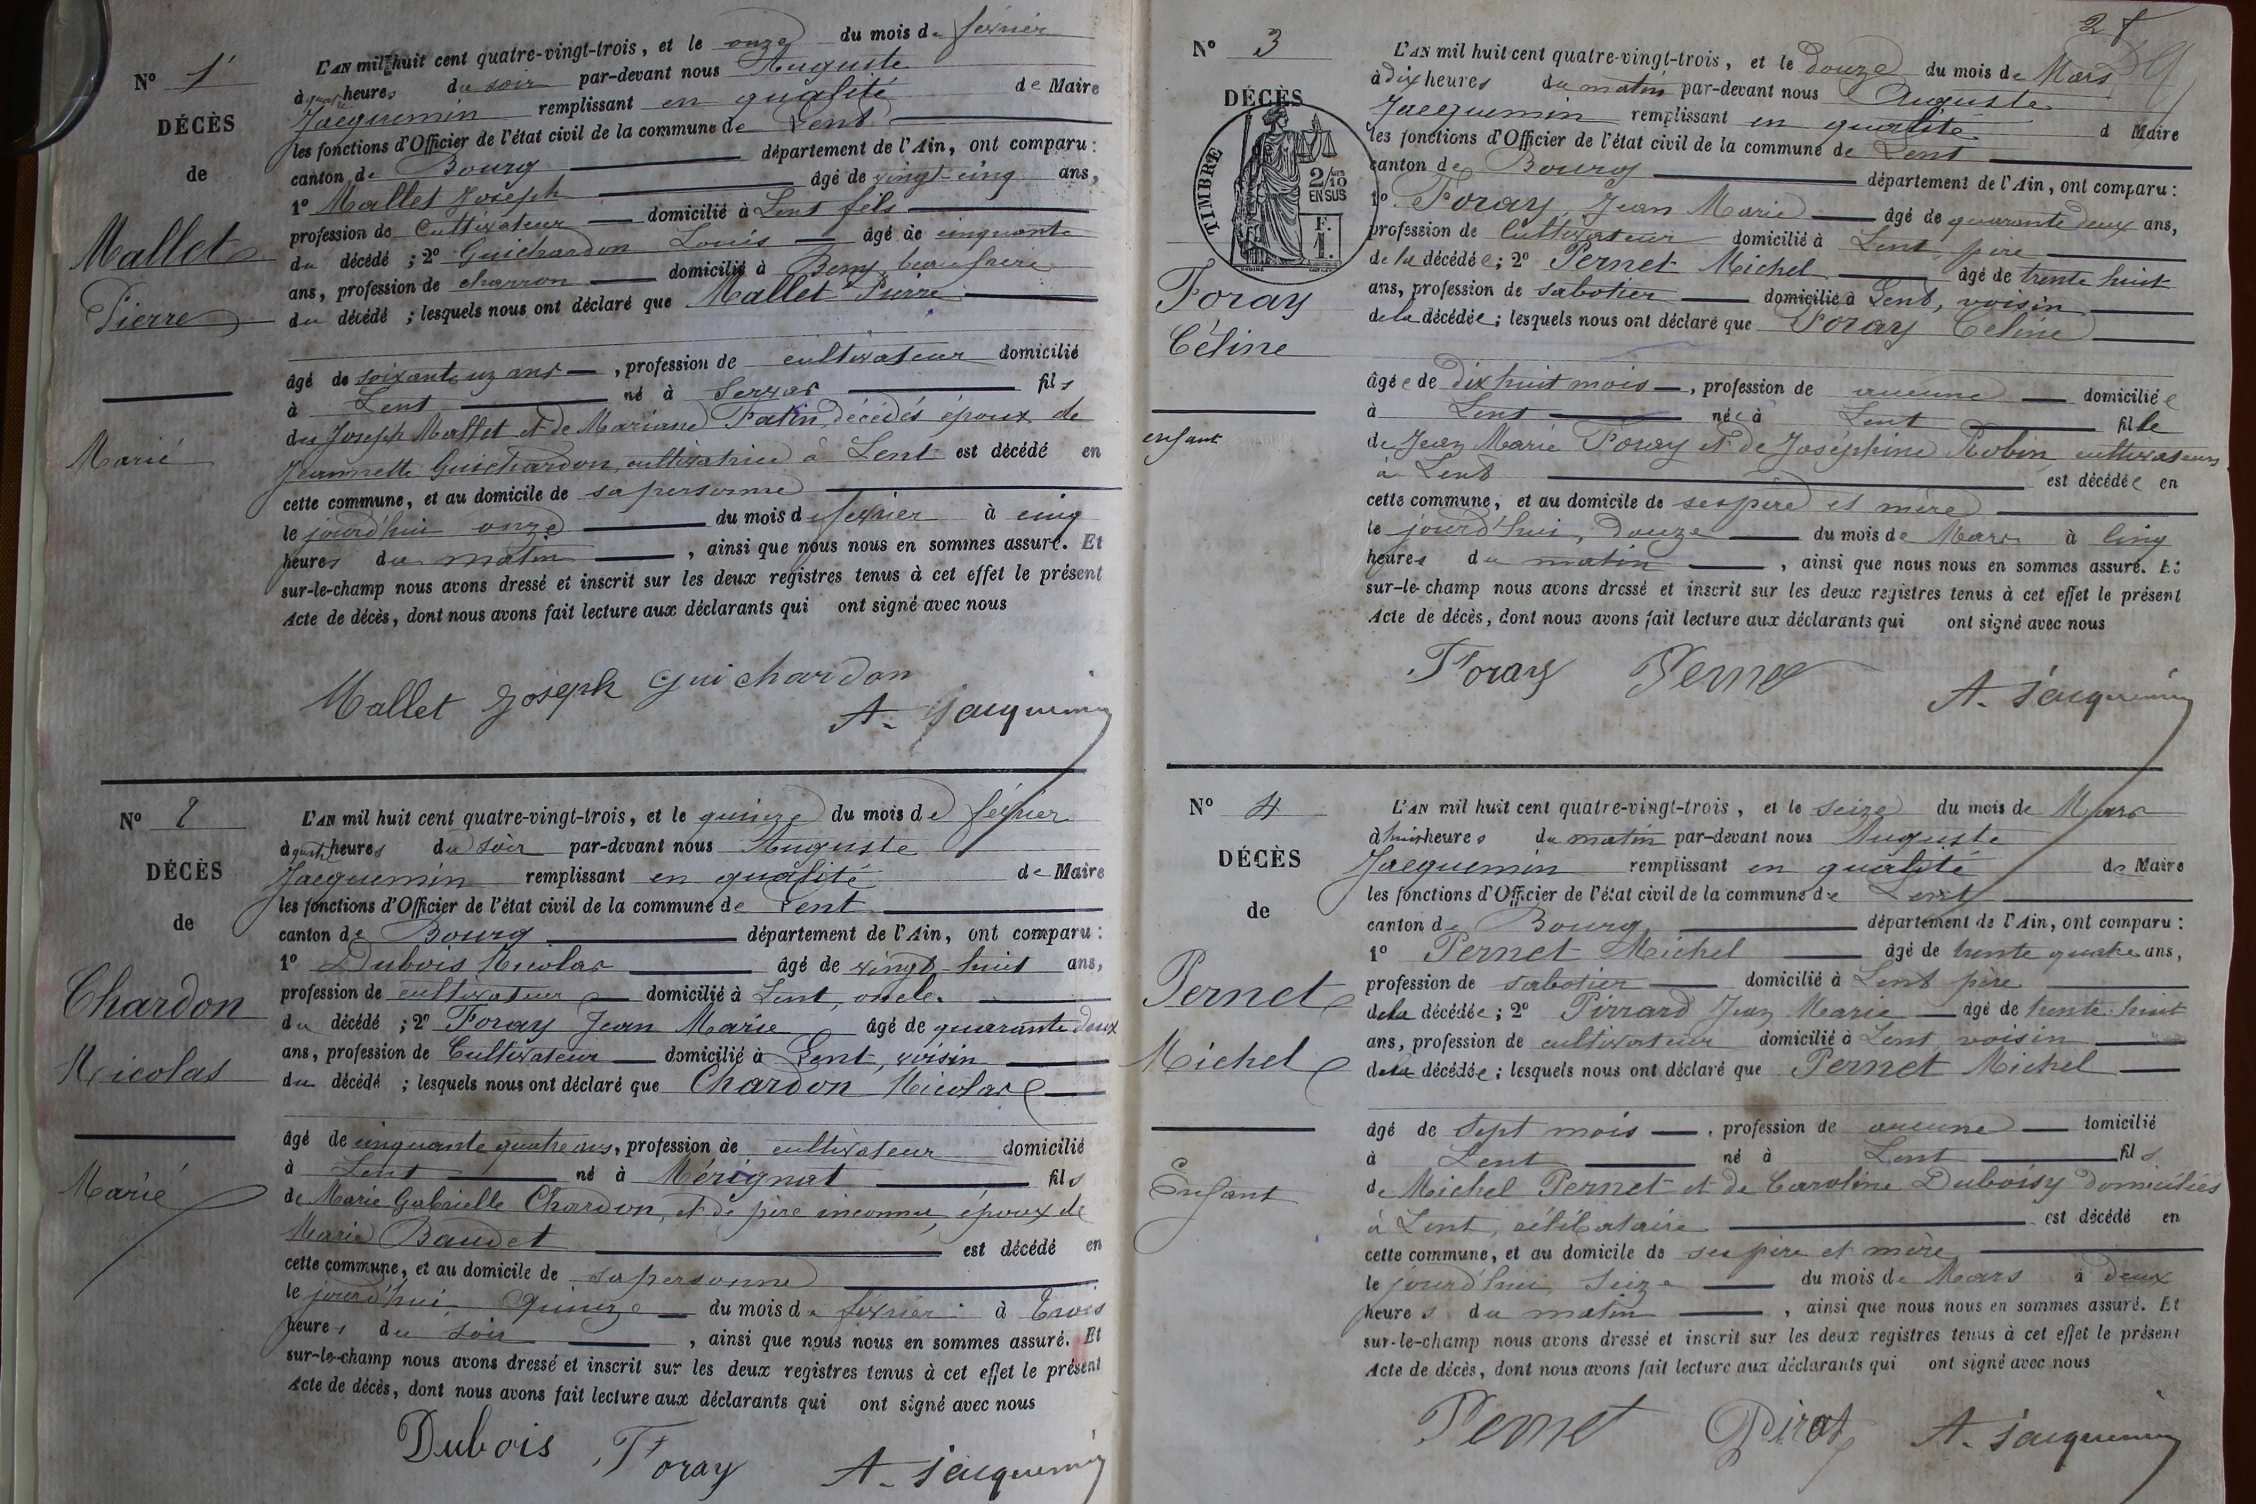 N° 1
DÉCÈS
de
Mallet
Pierre
Marié
L'AN mil huit cent quatre-vingt-trois, et le onze du mois de février
à quatre heures du soir par-devant nous Auguste
Jacquemin remplissant en qualité de Maire
les fonctions d'Officier de l'état civil de la commune de Lent
canton de Bourg département de l'Ain, ont comparu :
1° Mallet Joseph âgé de vingt-cinq ans,
profession de Cultivateur domicilié à Lent fils
du décédé ; 2° Guichardon Louis âgé de cinquante
ans, profession de charron domicilié à Beny, beau frère
du décédé ; lesquels nous ont déclaré que Mallet Pierre
âgé de soixante uz ans, profession de cultivateur domicilié
à Lent né à Servas fils
de Joseph Mallet et de Mariane Patin, décédés époux de
Jeannette Guichardon, cultivatrice à Lent est décédé en
cette commune, et au domicile de sa personne
le jourd'hui onze du mois de février à cinq
heures du matin, ainsi que nous nous en sommes assuré. Et
sur-le-champ nous avons dressé et inscrit sur les deux registres tenus à cet effet le présent
Acte de décès, dont nous avons fait lecture aux déclarants qui ont signé avec nous
Mallet Joseph Guichardon
A. Jacquemin
N° 2
DÉCÈS
de
Chardon
Nicolas
Marié
L'AN mil huit cent quatre-vingt-trois, et le quinze du mois de février
à quatre heures du soir par-devant nous Auguste
Jacquemin remplissant en qualité de Maire
les fonctions d'Officier de l'état civil de la commune de Lent
canton de Bourg département de l'Ain, ont comparu :
1° Dubois Nicolas âgé de vingt-huit ans,
profession de cultivateur domicilié à Lent, oncle
du décédé ; 2° Foray Jean Marie âgé de quarante deux
ans, profession de Cultivateur domicilié à Lent, voisin
du décédé ; lesquels nous ont déclaré que Chardon Nicolas
âgé de cinquante quatre ans, profession de cultivateur domicilié
à Lent né à Mérignat fils
de Marie Gabrielle Chardon, et de père inconnu, époux de
Marie Baudet est décédé en
cette commune, et au domicile de sa personne
le jourd'hui quinze du mois de février à trois
heures du soir, ainsi que nous nous en sommes assuré. Et
sur-le-champ nous avons dressé et inscrit sur les deux registres tenus à cet effet le présent
Acte de décès, dont nous avons fait lecture aux déclarants qui ont signé avec nous
Dubois Foray A. Jacquemin
28
N° 3
DÉCÈS
TIMBRE
2/10
EN SUS
F.
1.
Foray
Céline
enfant
L'AN mil huit cent quatre-vingt-trois, et le Douze du mois de Mars
à dix heures du matin par-devant nous Auguste
Jacquemin remplissant en qualité d Maire
les fonctions d'Officier de l'état civil de la commune de Lent
canton de Bourg département de l'Ain, ont comparu :
1° Foray Jean Marie âgé de quarante deux ans,
profession de Cultivateur domicilié à Lent, père
de la décédée ; 2° Pernet Michel âgé de trente huit
ans, profession de sabotier domicilié à Lent, voisin
de la décédée ; lesquels nous ont déclaré que Foray Céline
âgée de dix huit mois, profession de aucune domiciliée
à Lent née à Lent fille
de Jean Marie Foray et de Joséphine Robin, cultivateurs
à Lent est décédée en
cette commune, et au domicile de ses père et mère
le jourd'hui, Douze du mois de Mars à Cinq
heures du matin, ainsi que nous nous en sommes assuré. Et
sur-le-champ nous avons dressé et inscrit sur les deux registres tenus à cet effet le présent
Acte de décès, dont nous avons fait lecture aux déclarants qui ont signé avec nous
Foray Pernet A. Jacquemin
N° 4
DÉCÈS
de
Pernet
Michel
Enfant
L'AN mil huit cent quatre-vingt-trois, et le seize du mois de Mars
à huit heures du matin par-devant nous Auguste
Jacquemin remplissant en qualité de Maire
les fonctions d'Officier de l'état civil de la commune de Lent
canton de Bourg département de l'Ain, ont comparu :
1° Pernet Michel âgé de trente quatre ans,
profession de sabotier domicilié à Lent père
de la décédée ; 2° Pirrard Jean Marie âgé de trente huit
ans, profession de cultivateur domicilié à Lent voisin
de la décédée ; lesquels nous ont déclaré que Pernet Michel
âgé de sept mois, profession de aucune domicilié
à Lent né à Lent fils
de Michel Pernet et de Caroline Duboisy domiciliés
à Lent, célibataire est décédé en
cette commune, et au domicile de ses père et mère
le jourd'hui seize du mois de Mars à deux
heures du matin, ainsi que nous nous en sommes assuré. Et
sur-le-champ nous avons dressé et inscrit sur les deux registres tenus à cet effet le présent
Acte de décès, dont nous avons fait lecture aux déclarants qui ont signé avec nous
Pernet Pirat A. Jacquemin